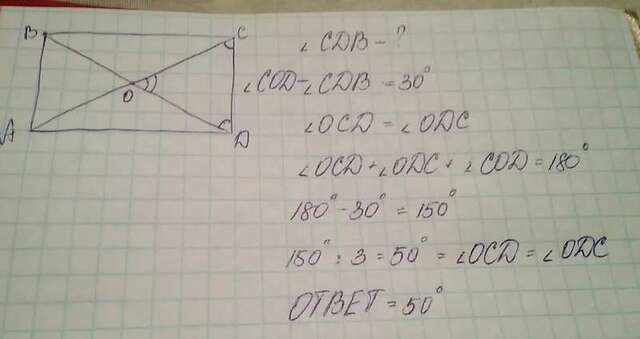 B C
∠CDB - ?
∠COD - ∠CDB = 30°
O
∠OCD = ∠ODC
A D
∠OCD + ∠ODC + ∠COD = 180°
180° - 30° = 150°
150° : 3 = 50° = ∠OCD = ∠ODC
ОТВЕТ = 50°